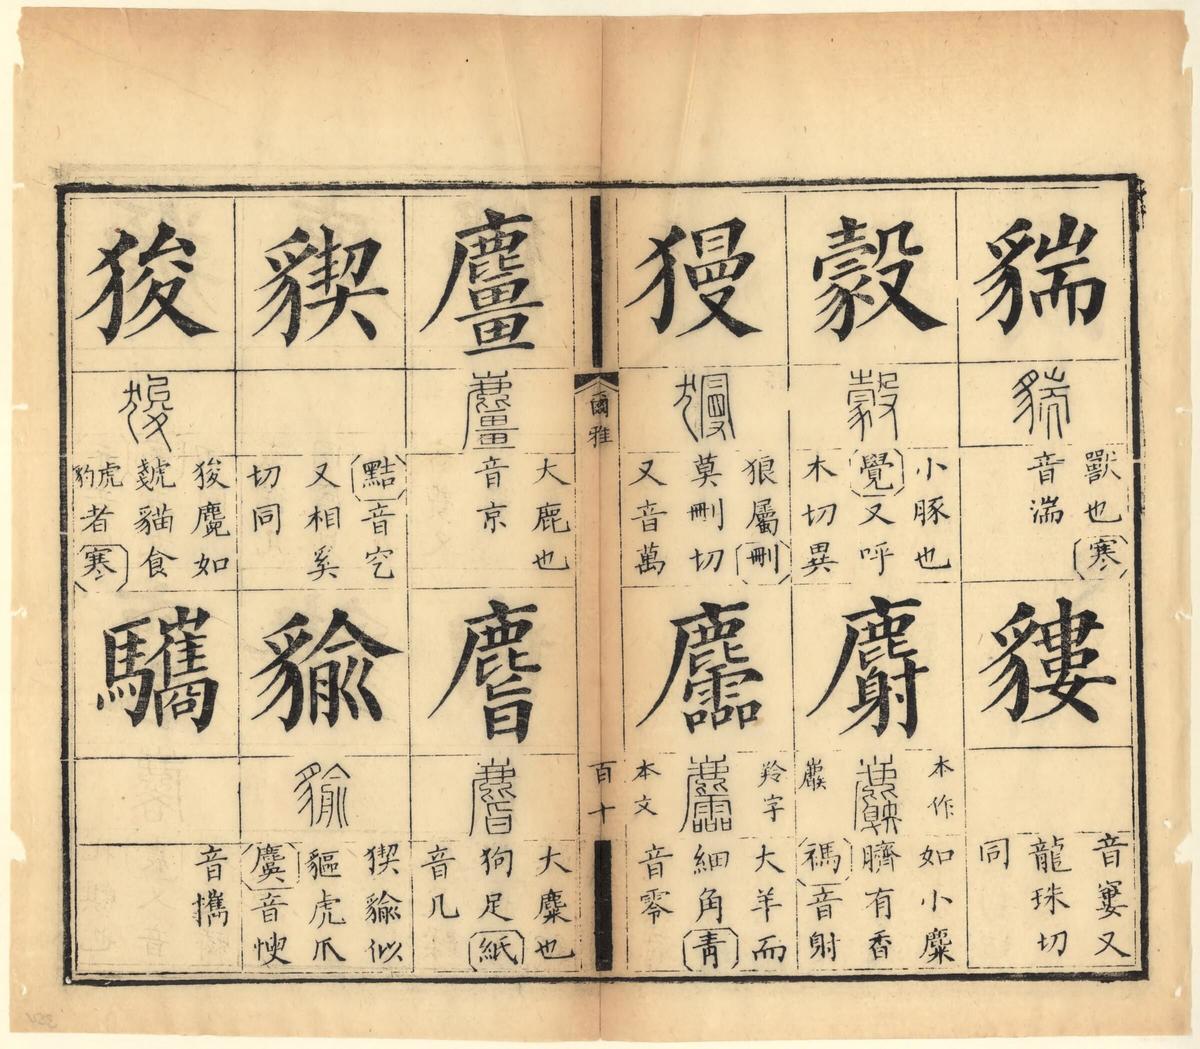 貒
獸也寒
音湍
貗
音窶又
龍珠切
同
豰
小豚也
覺又呼
木切異
麝
本作
如小麋
臍有香
禡音射
獌
狼屬刪
莫刪切
又音萬
麢
羚字
本文
大羊而
細角青
音零
國雅
百十
麠
大鹿也
音京
大麋也
狗足紙
音几
䝟
黠音穵
又相奚
切同
貐
猰貐似
貙虎爪
麌音
狻
狻麑如
虦貓食
虎豹者寒
驨
音攜